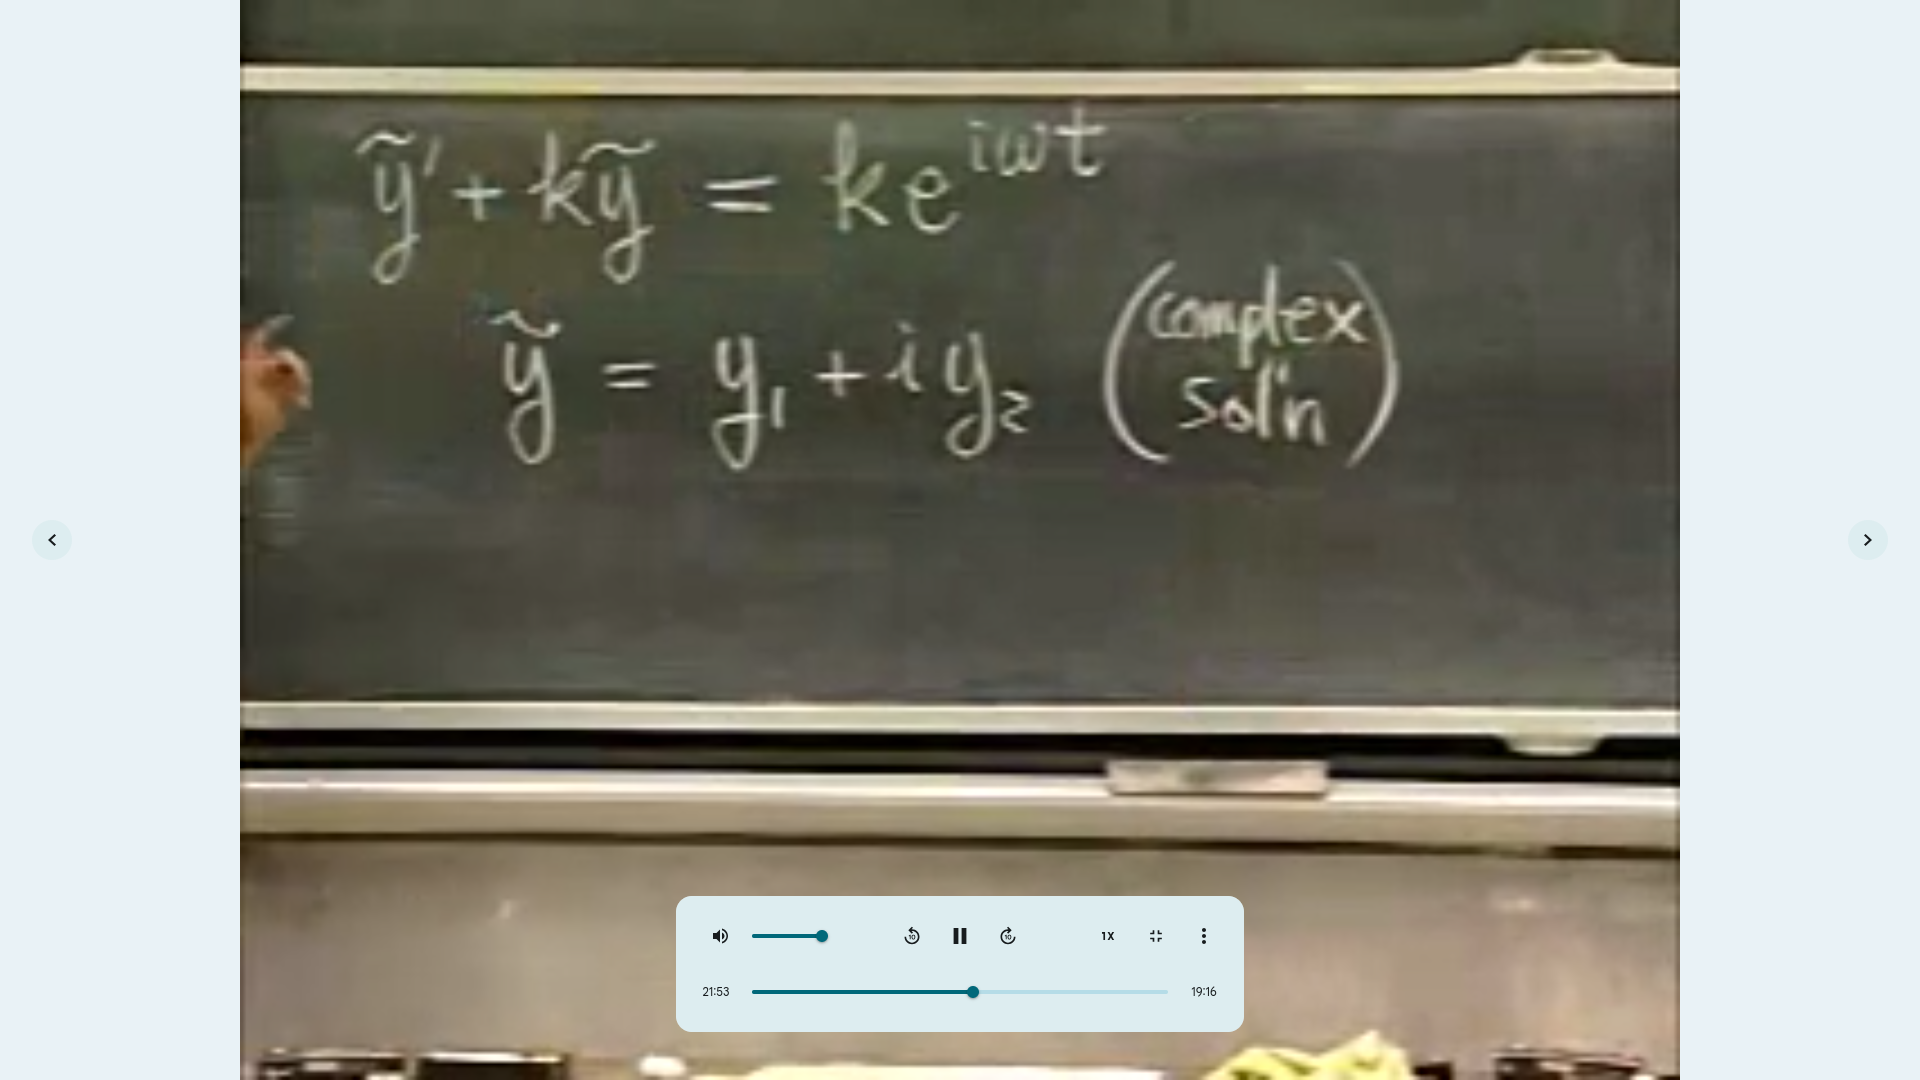 ỹ' + kỹ = ke^{iωt}
ỹ = y₁ + iy₂ (complex sol'n)
10 10 1X
21:53 19:16